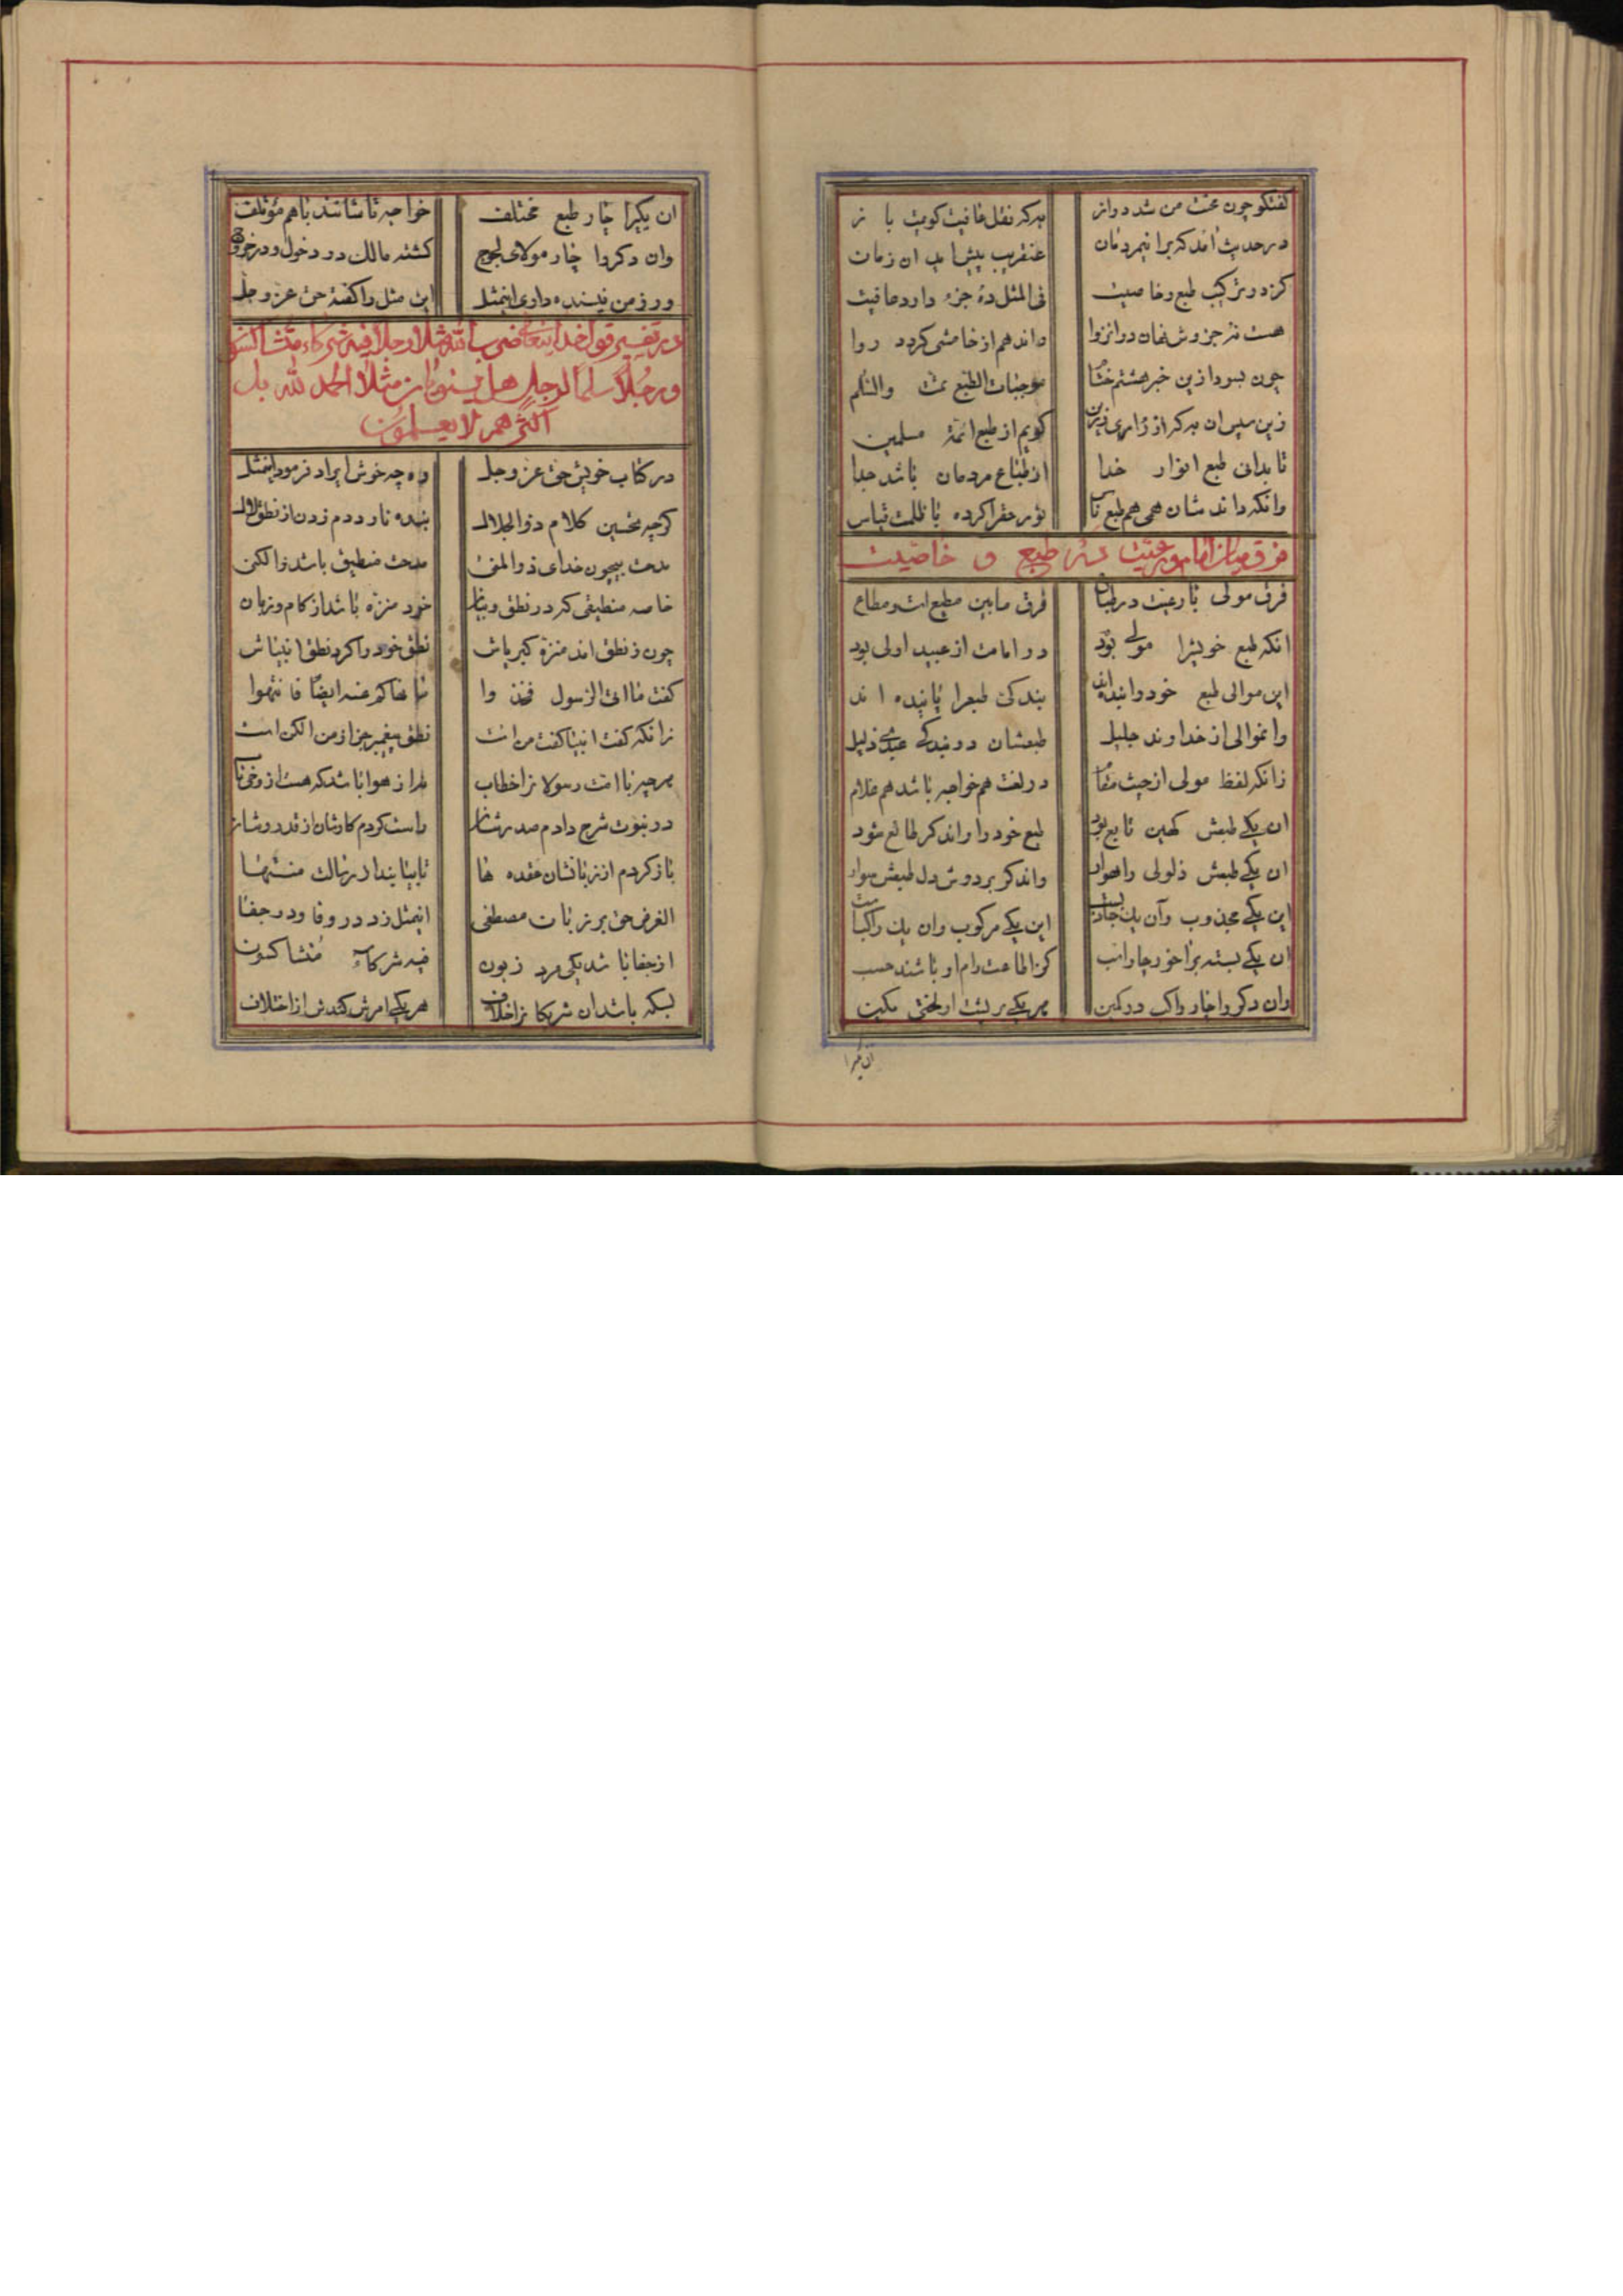 کفتکو چون مخت من شد دراز
بهرکه نقل عافیت کویمت باز
در حدیث امد که بر اینمردمان
عنقریب پیش اید ان زمان
کز در ترکیب طبع و خاصیت
فی المثل ده جزء دارد عافیت
هست نه جزوش نهان در انزوا
واند هم از خامشی کردد روا
چون بود ازین خبر هشتم
موجبات الطبع تمت والتکلم
زین سپس ان به که از
کویم از طبع ائمهٔ مسلمین
تا بدانی طبع انوار خدا
از طباع مردمان باشد جدا
وانکه داند شان همی هم طبع ناس
نور حقرا کرده با ظلمت قیاس
فرق میان امام و رعیت در طبع و خاصیت
فرق مولی با رعیت در طباع
فرق مابین مطیع است و مطاع
انکه طبع خویشرا مولی بود
در امامت از عبید اولی بود
این موالی طبع خود را بنده‌اند
بندکی طبعرا پاینده اند
وانموالی از خداوند جلیل
طبعشان در بندکی عبدی ذلیل
زانکه لفظ مولی از حیث مقام
در لغت هم خواجه باشد هم غلام
ان یکی طبعش کهین تابع بود
طبع خود را واندکر طالع شود
ان یکی طبعش ذلولی راهوار
واندکر بر دوش دل طبعش سوار
این یکی مجذوب وآن یک جاذبست
این یکی مرکوب وان یک راکبست
ان یکی بسته براخور چار اسب
کز اطاعت رام او باشند حسب
وان دکر را چار راکب در کمین
هر یکی بر پشت او لختی مکین
ان یکیرا
ان یکیرا چار طبع مختلف
خواجه تاشانند باهم مؤتلف
وان دکر را چار مولای لجوج
کشته مالک در دخول و در خروج
ور ز من نپسنده داری اینمثل
این مثل را کفته حق عز و جل
در تفسیر قول خدایتعالی ضرب الله مثلا رجلا فیه شرکاء متشاکسون
ورجلا سلما لرجل هل یستویان مثلا الحمد لله بل
اکثرهم لا یعلمون
در کتاب خویش حق عز و جل
وه چه خوش ایراد فرمود اینمثل
کرچه تحسین کلام ذوالجلال
بنده نارد دم زدن از نطق لال
مدحت بیچون خدای ذوالمنن
مدحت منطیق باشد والکن
خاصه منطیقی که در نطق و بیان
خود منزه باشد از کام و زبان
چون ز نطق امد منزه کبریاش
نطق خود را کرد نطق انبیاش
کفت ما اتی الرسول فخذوا
ما نهاکم عنه ایضا فانتهوا
زانکه کفت انبیا کفت من است
نطق پیغمبر جز از من الکن است
هرچه با امت رسولانرا خطاب
در نبوت شرح دادم صدرشان
راست کردم کارشان از قدر و شان
باز کردم از زبانشان عقده ها
الغرض حق بر زبان مصطفی
اینمثل زد در وفا و در جفا
از جفا باشد یکی مرد زبون
فیه شرکاء متشاکسون
بسکه باشد ان شریکانرا خلاف
هر یکی امرش کندش از اختلاف